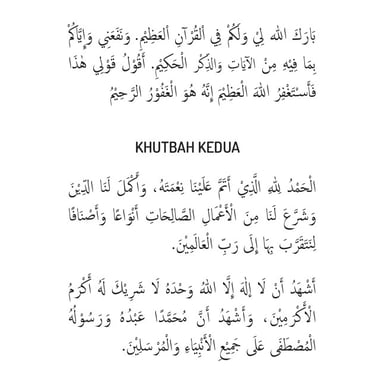 بَارَكَ الله لِيْ وَلَكُمْ فِي اْلقُرْآنِ اْلعَظِيْمِ. وَنَفَعَنِي وَإِيَّاكُمْ
بِمَا فِيْهِ مِنْ الآيَاتِ وَالذِّكْرِ الْحَكِيْمِ. أَقُوْلُ قَوْلِي هٰذَا
فَأَسْتَغْفِرُ اللهَ الْعَظِيْمَ إِنَّهُ هُوَ الْغَفُوْرُ الرَّحِيْمُ
KHUTBAH KEDUA
الْحَمْدُ لِلهِ الَّذِيْ أَتَمَّ عَلَيْنَا نِعْمَتَهُ، وَأَكْمَلَ لَنَا الدِّيْنَ
وَشَرَّعَ لَنَا مِنَ الْأَعْمَالِ الصَّالِحَاتِ أَنْوَاعًا وَأَصْنَافًا
لِنَتَقَرَّبَ بِهَا إِلَى رَبِّ الْعَالَمِيْنَ.
أَشْهَدُ أَنْ لَا إِلٰهَ إِلَّا اللهُ وَحْدَهُ لَا شَرِيْكَ لَهُ أَكْرَمُ
الْأَكْرَمِيْنَ، وَأَشْهَدُ أَنَّ مُحَمَّدًا عَبْدُهُ وَرَسُوْلُهُ
الْمُصْطَفَى عَلَى جَمِيْعِ الْأَنْبِيَاءِ وَالْمُرْسَلِيْنَ.